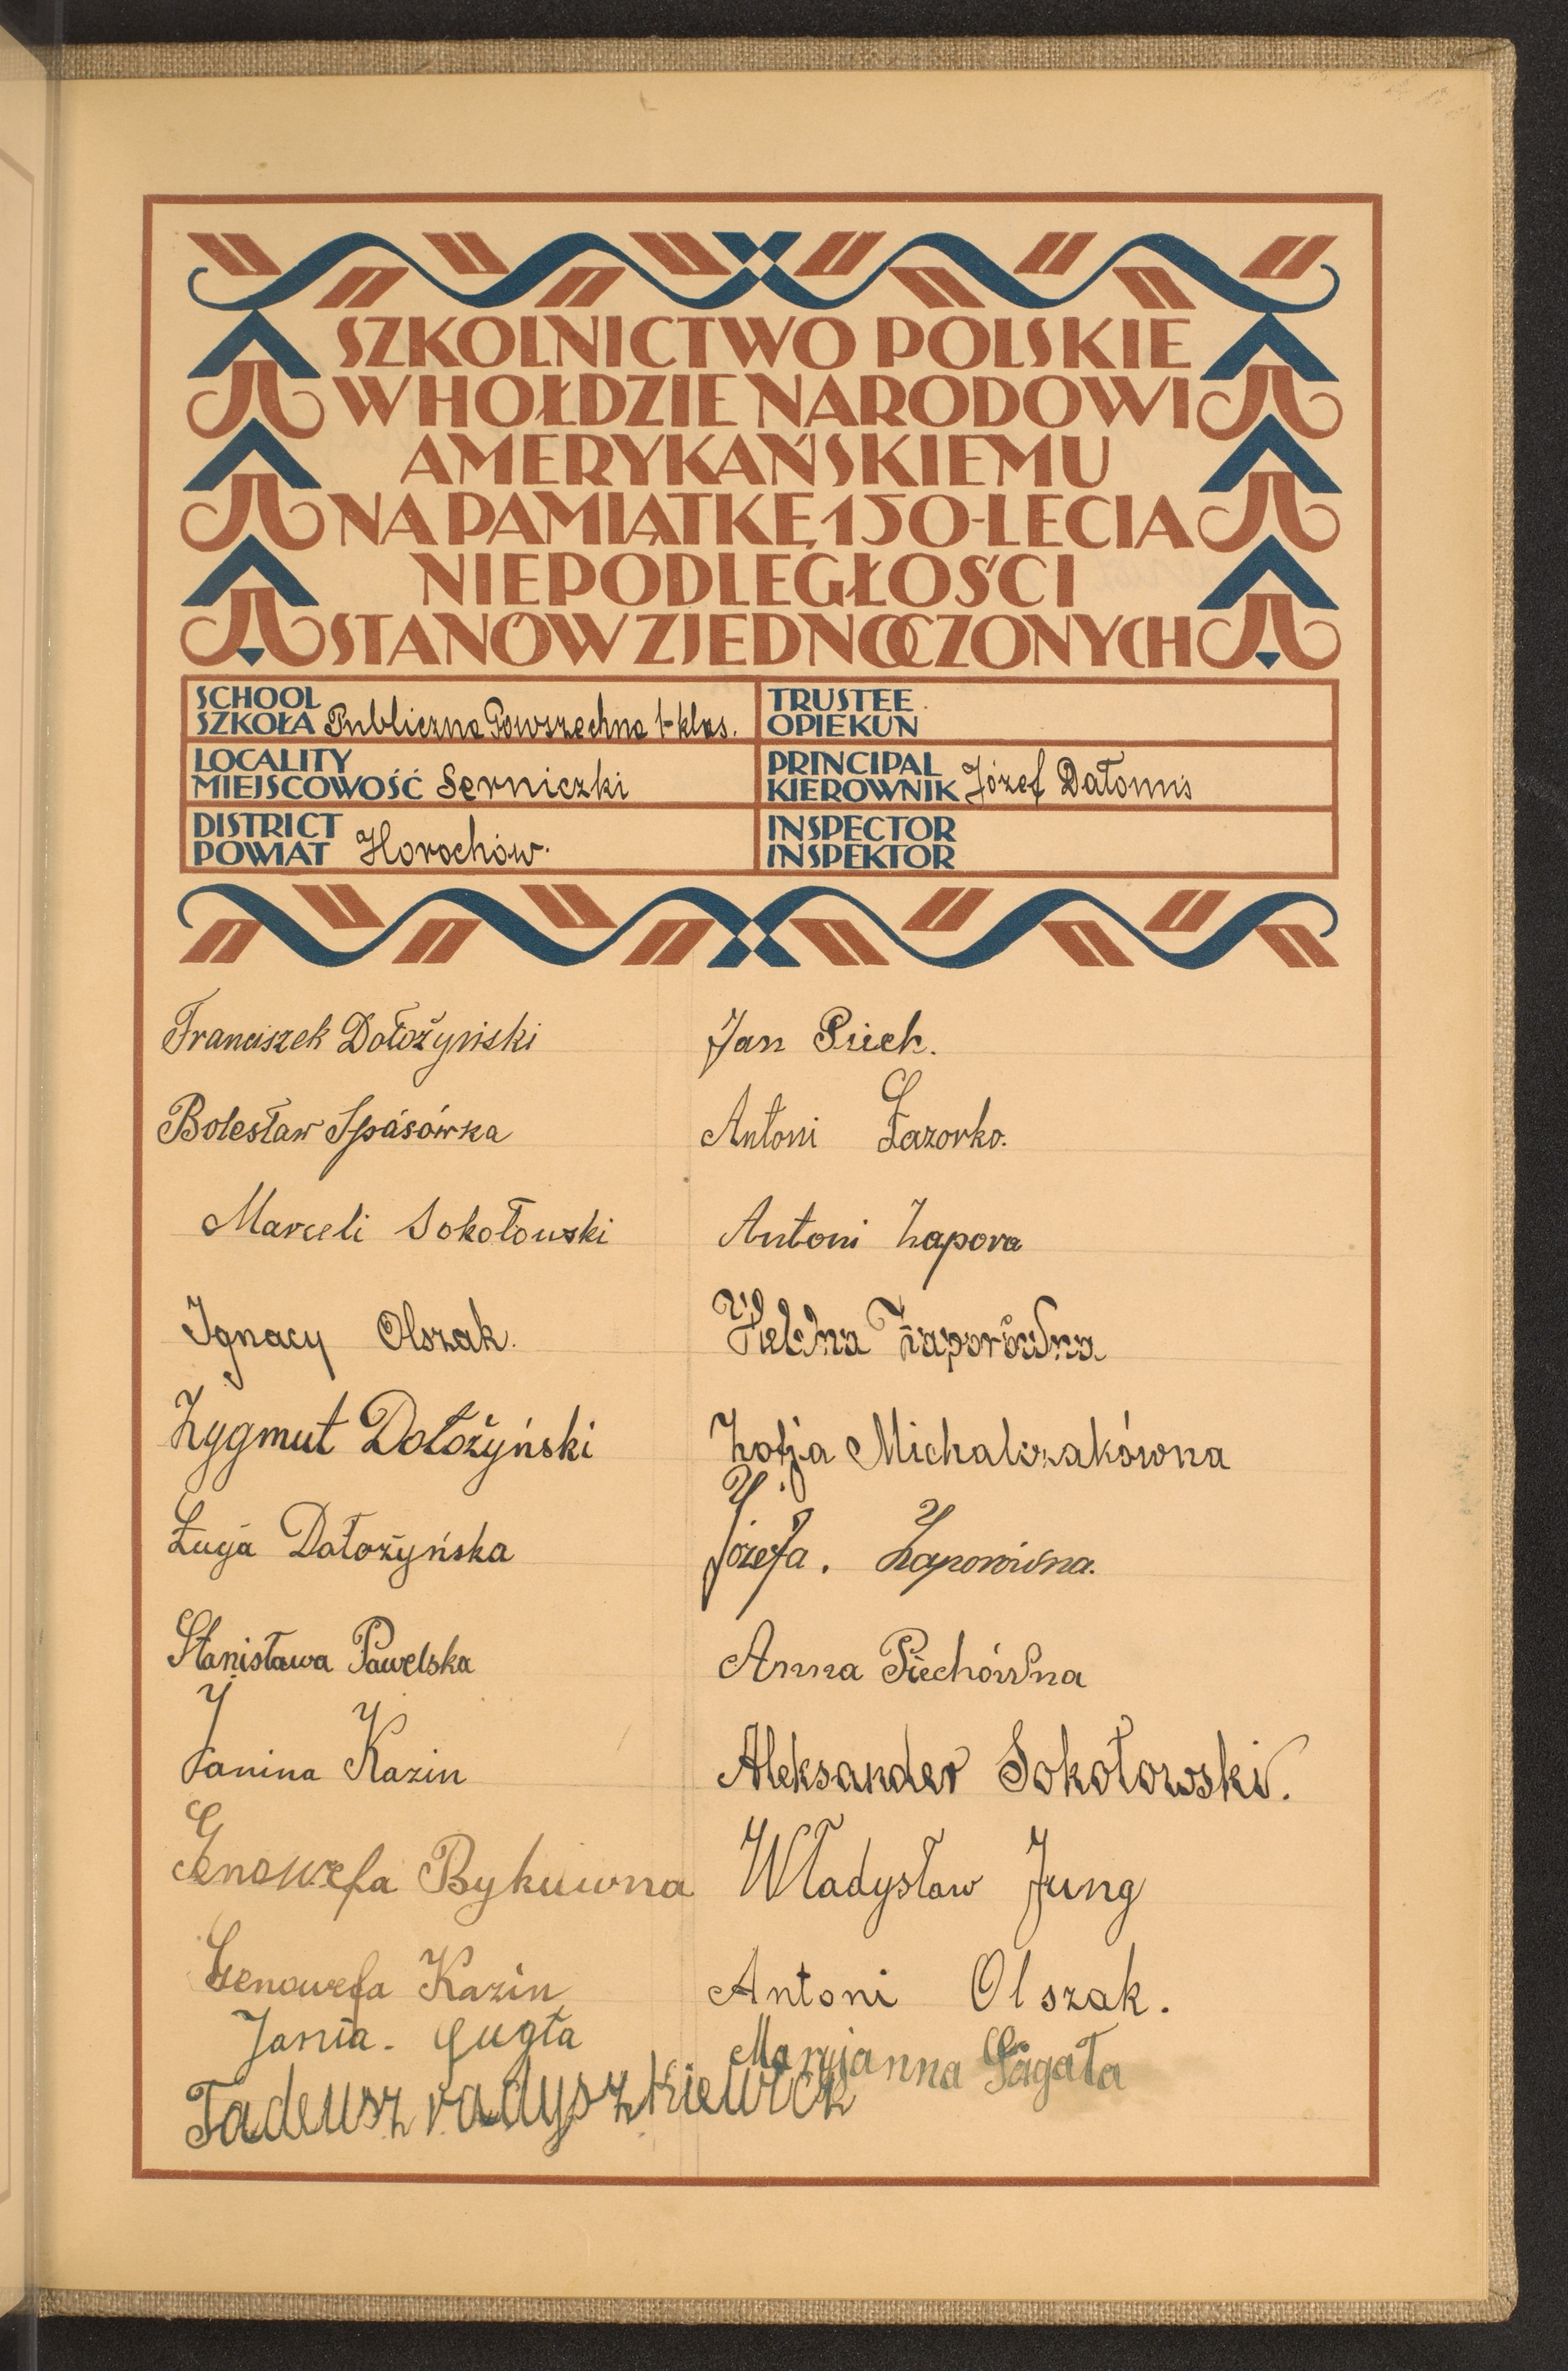 SZKOLNICTWO POLSKIE
W HOŁDZIE NARODOWI
AMERYKAŃSKIEMU
NA PAMIĄTKĘ 150-LECIA
NIEPODLEGŁOŚCI
STANÓW ZJEDNOCZONYCH
SCHOOL
SZKOŁA Publiczna Powszechna 1-klas.
TRUSTEE
OPIEKUN
LOCALITY
MIEJSCOWOŚĆ Serniczki
PRINCIPAL
KIEROWNIK Józef
DISTRICT
POWIAT Horochów.
INSPECTOR
INSPEKTOR
Franciszek Dołożyński
Bolesław Spásówka
Marceli Sokołowski
Ignacy Olszak.
Zygmut Dołożyński
Dołożyńska
Stanisława Pawelska
Janina Kazin
Genowefa Bykuwna
Genowefa Kazin
Jania. Gugta
Tadeusz radyszkiewick
Jan Piech.
Antoni Łazorko.
Antoni Zapora
Helena Zaporówna
Zofja Michalczakówna
Józefa. Zaporówna.
Anna Piechówna
Aleksander Sokołowski.
Władysław Jung
Antoni Olszak.
Maryjanna Sagała